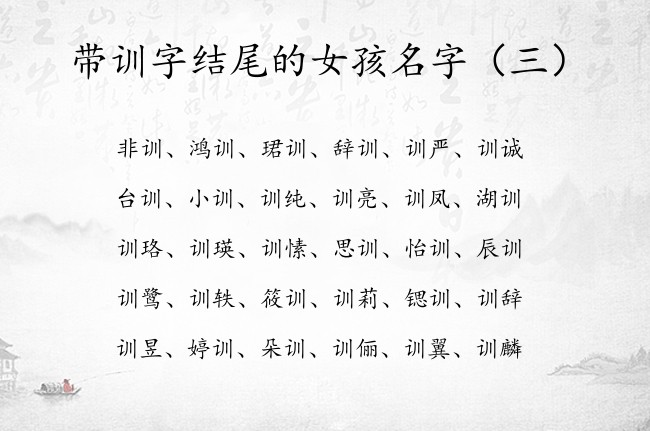 带训字结尾的女孩名字（三）
非训、鸿训、珺训、辞训、训严、训诚
台训、小训、训纯、训亮、训凤、湖训
训珞、训瑛、训愫、思训、怡训、辰训
训鹭、训轶、筱训、训莉、锶训、训辞
训昱、婷训、朵训、训俪、训翼、训麟